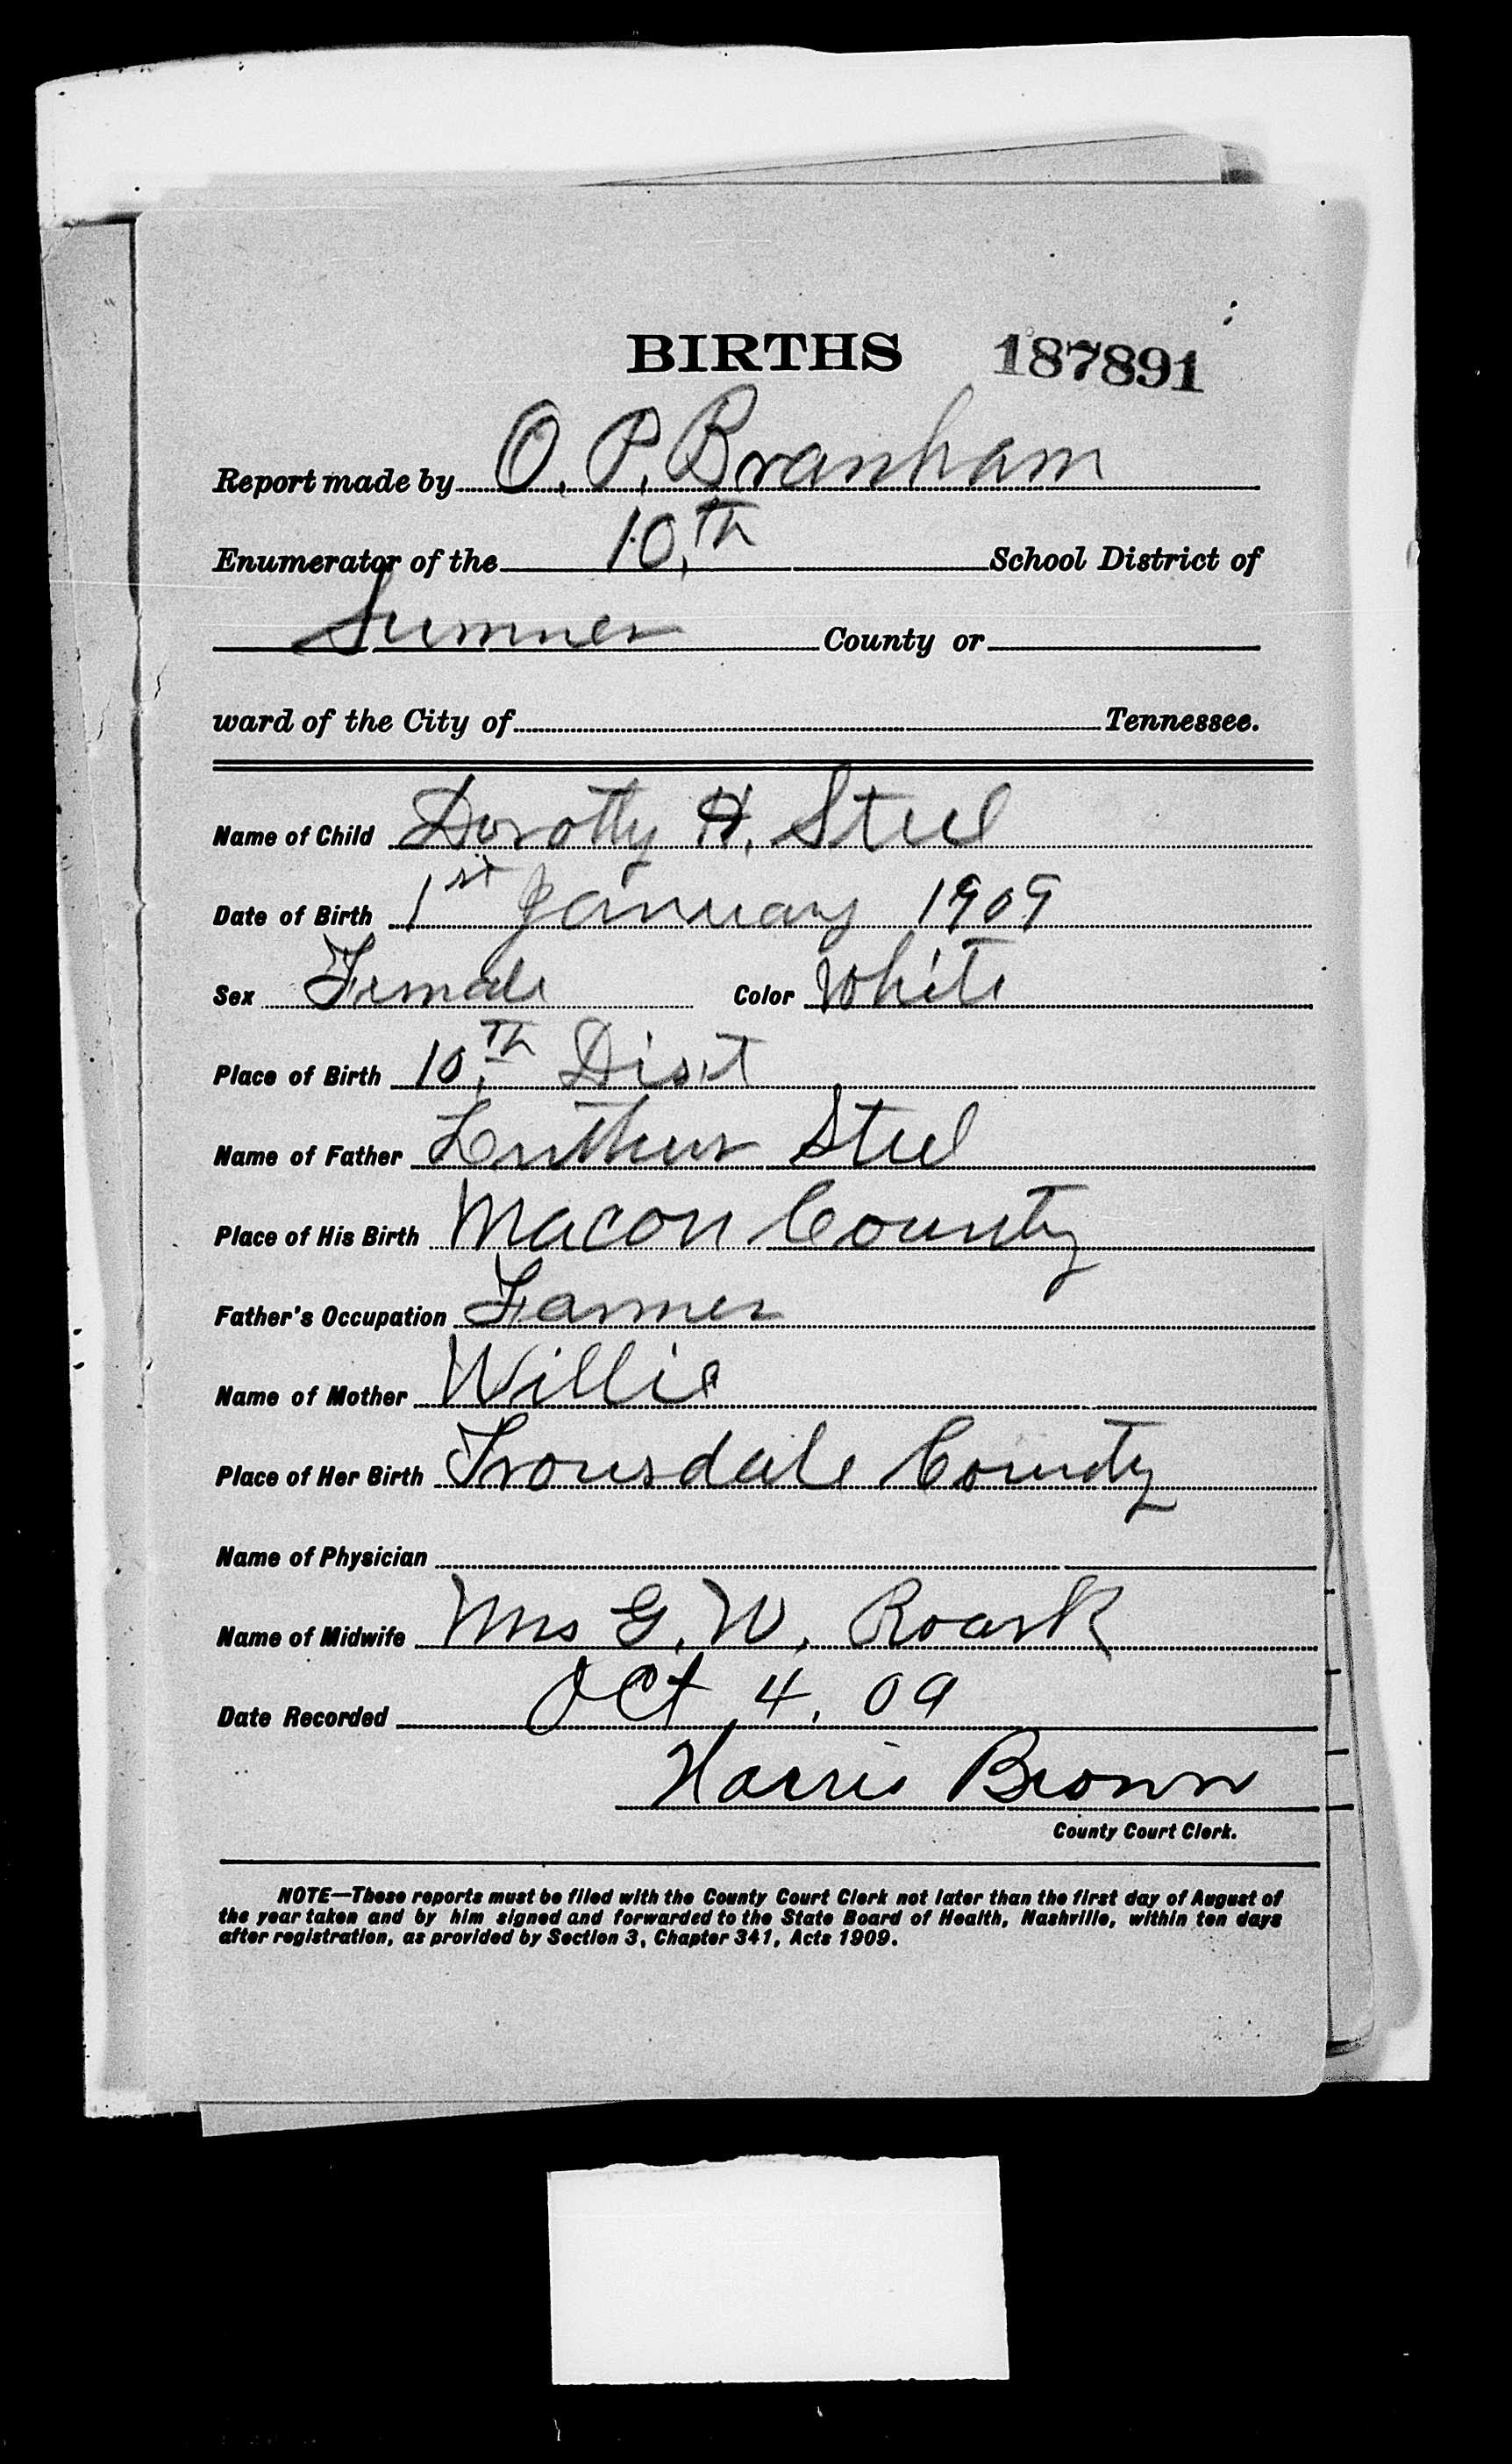 BIRTHS 187891
Report made by O. P. Branham
Enumerator of the 10,th School District of
Sumner County or
ward of the City of Tennessee.
Name of Child Dorothy H. Steel
Date of Birth 1st January 1909
Sex Female Color White
Place of Birth 10,th Dist
Name of Father Luther Steel
Place of His Birth Macon County
Father's Occupation Farmer
Name of Mother Willie
Place of Her Birth Trousdale County
Name of Physician
Name of Midwife Mrs G. W. Roark
Date Recorded Oct 4, 09
Harris Brown
County Court Clerk.
NOTE—These reports must be filed with the County Court Clerk not later than the first day of August of
the year taken and by him signed and forwarded to the State Board of Health, Nashville, within ten days
after registration, as provided by Section 3, Chapter 341, Acts 1909.